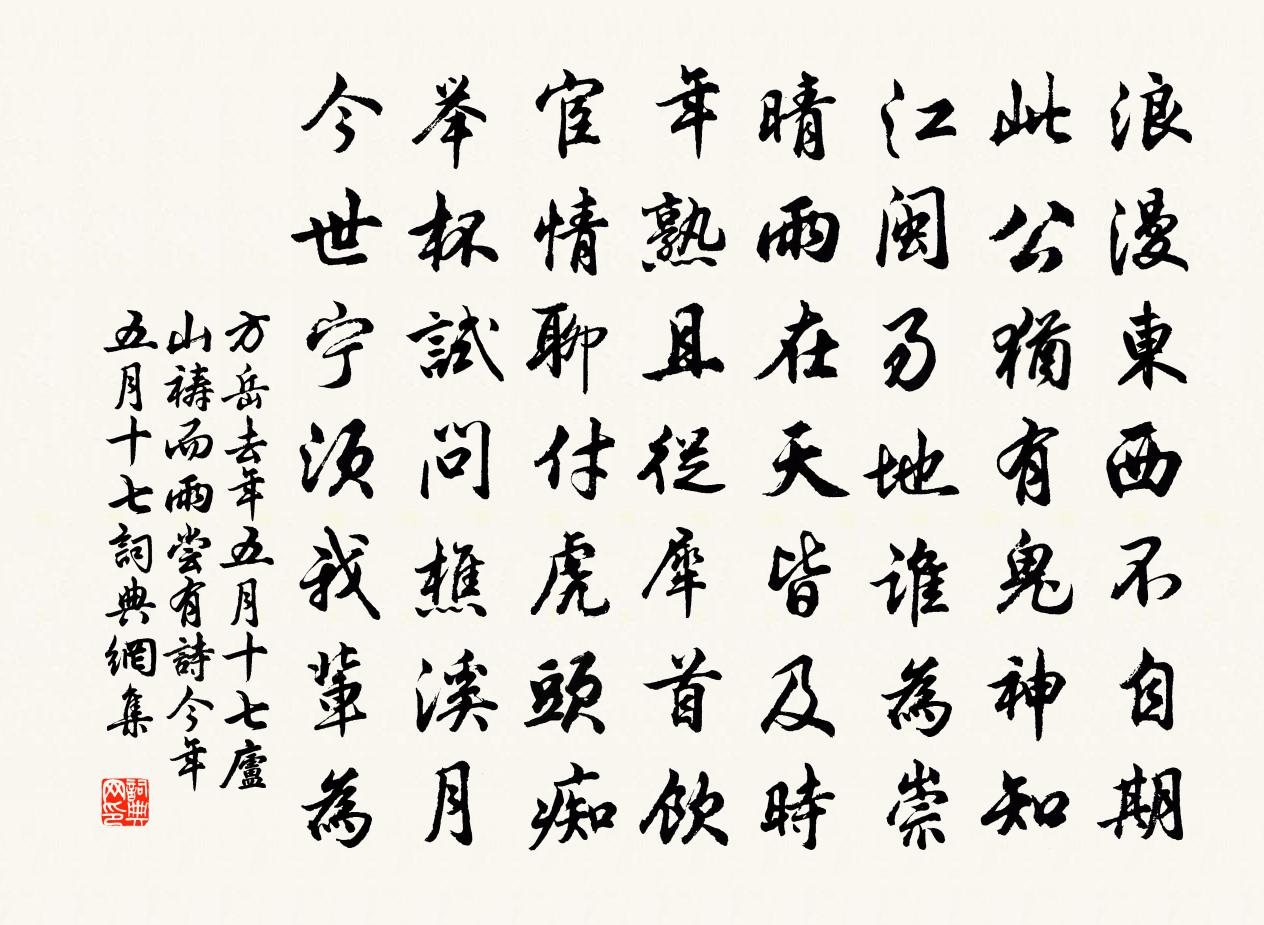 浪漫東西不自期
此公猶有鬼神知
江閩易地誰為崇
晴雨在天皆及時
年熟且從犀首飲
宦情聊付虎頭痴
举杯試問樵溪月
今世宁須我輩為
方岳去年五月十七廬
山禱而雨尝有詩今年
五月十七詞典網集
詞典网印